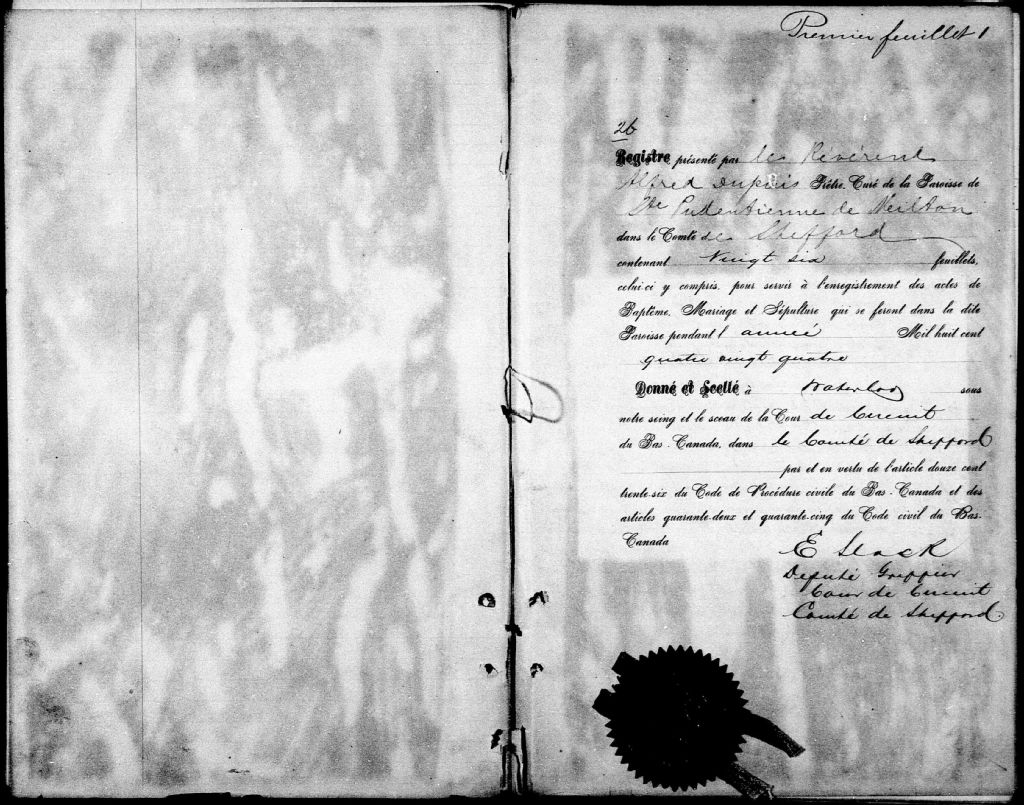 Premier feuillet 1
26
Registre présenté par le Révérend
Alfred Dupuis Prêtre, Curé de la Paroisse de
Ste Pudentienne de Meilton
dans le Comté de Shefford
contenant Vingt six feuillets,
celui-ci y compris, pour servir à l'enregistrement des actes de
Baptême, Mariage et Sépulture qui se feront dans la dite
Paroisse pendant l'année Mil huit cent
quatre vingt quatre
Donné et Scellé à Waterloo sous
notre seing et le sceau de la Cour de Circuit
du Bas-Canada, dans le Comté de Shefford
par et en vertu de l'article douze cent
trente-six du Code de Procédure civile du Bas-Canada et des
articles quarante-deux et quarante-cinq du Code civil du Bas-
Canada
E Slack
Deputé Greffier
Cour de Circuit
Comté de Shefford.